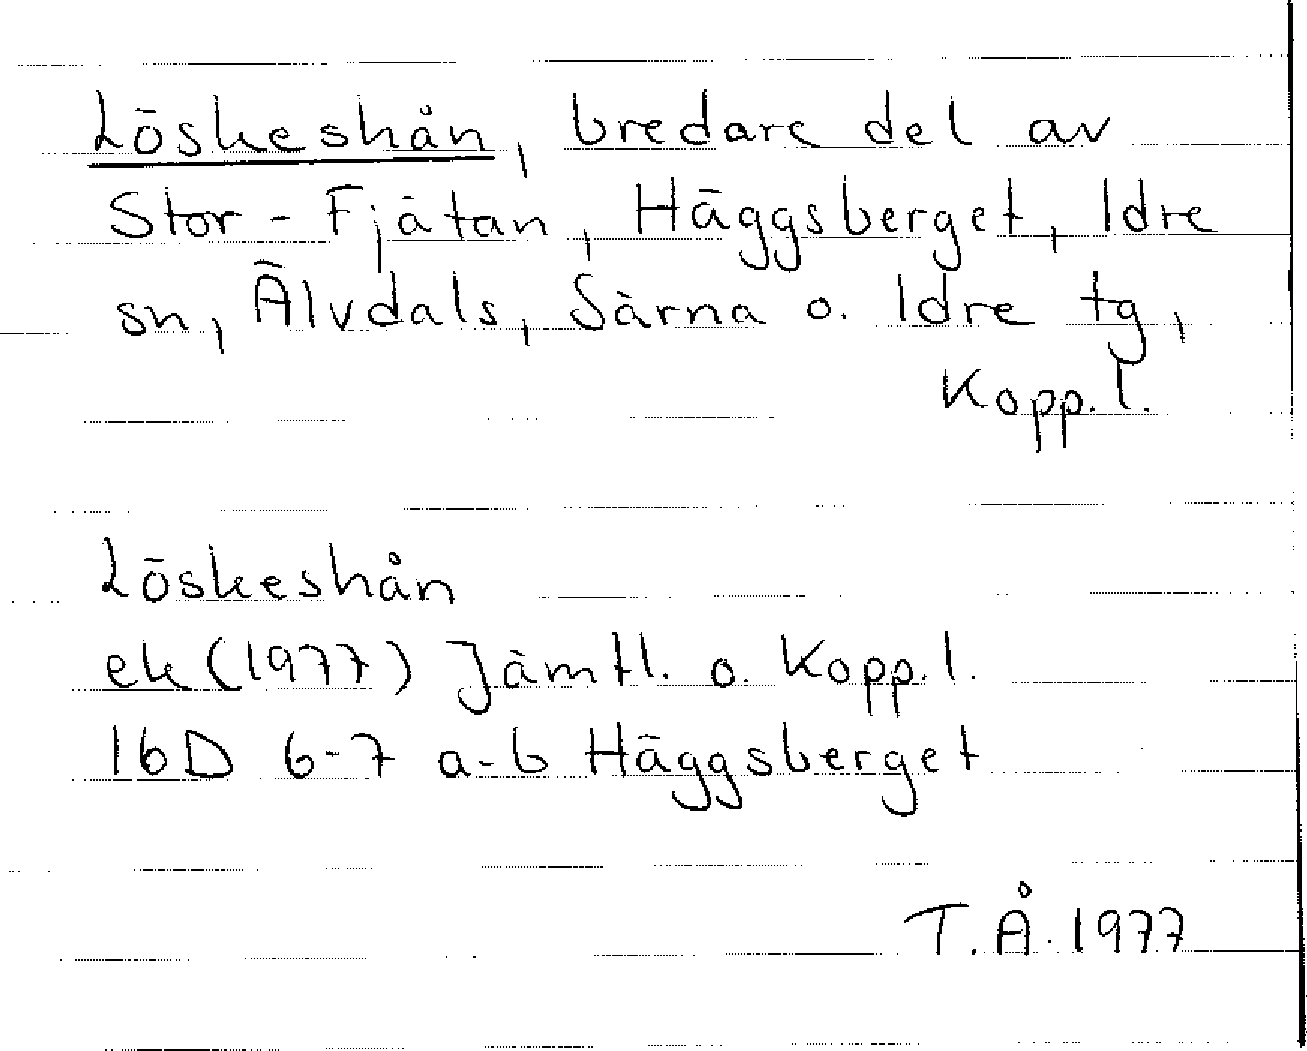 Löskeshån, bredare del av
Stor-Fjätan, Häggsberget, Idre
sn, Älvdals, Särna o. Idre tg,
Kopp.l.
Löskeshån
ek (1977) Jämtl. o. Kopp.l.
16D 6-7 a-b Häggsberget
T.Å. 1977